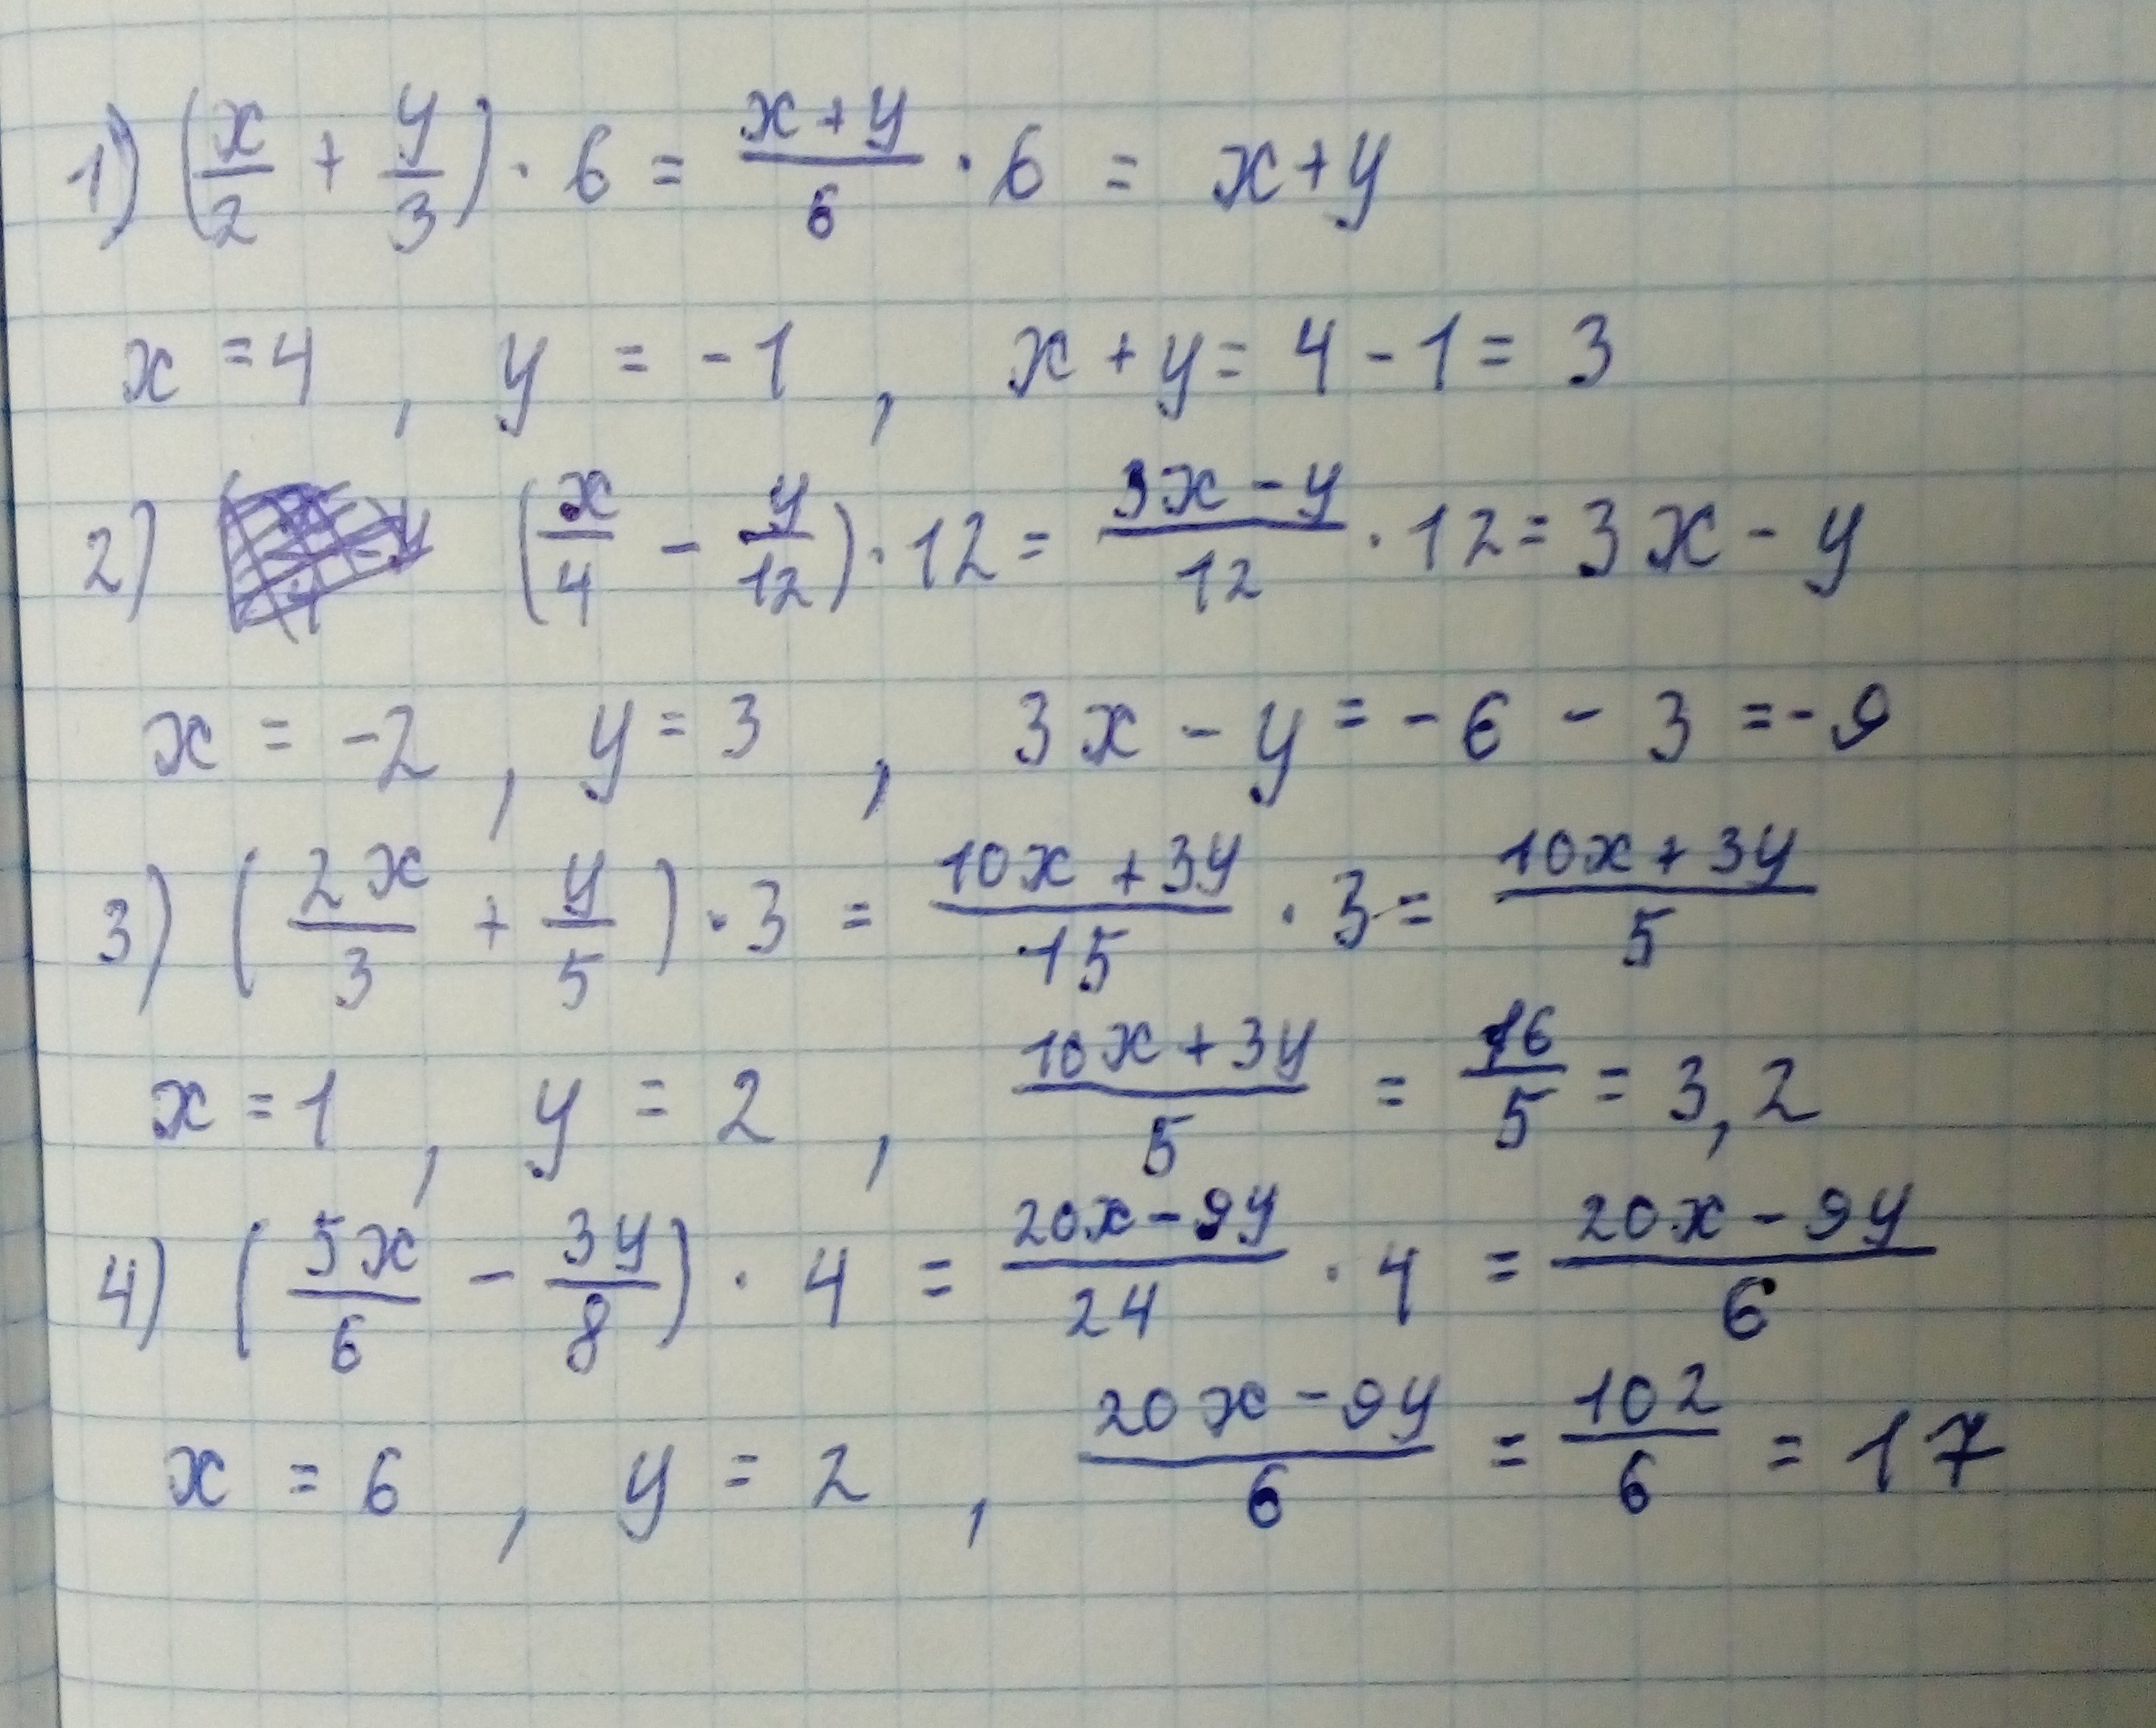 1) (x/2 + y/3) · 6 = (x+y)/6 · 6 = x+y
x = 4, y = -1, x + y = 4 - 1 = 3
2) (x/4 - y/12) · 12 = (3x - y)/12 · 12 = 3x - y
x = -2, y = 3, 3x - y = -6 - 3 = -9
3) (2x/3 + y/5) · 3 = (10x + 3y)/15 · 3 = (10x + 3y)/5
x = 1, y = 2, (10x + 3y)/5 = 16/5 = 3,2
4) (5x/6 - 3y/8) · 4 = (20x - 9y)/24 · 4 = (20x - 9y)/6
x = 6, y = 2, (20x - 9y)/6 = 102/6 = 17